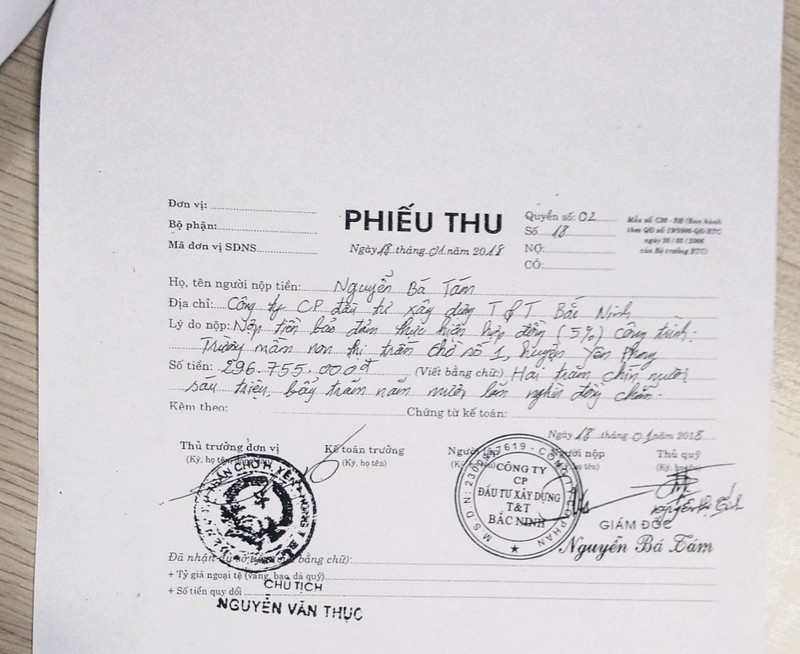 Đơn vị:
Bộ phận:
Mã đơn vị SDNS
PHIẾU THU
Ngày 18 tháng 01 năm 2018
Quyển số: 02
Số 18
NỢ:
CÓ:
Mẫu số C30 - BB (Ban hành
theo QĐ số 19/2006-QĐ-BTC
ngày 30 / 03 / 2006
của Bộ trưởng BTC)
Họ, tên người nộp tiền: Nguyễn Bá Tám
Địa chỉ: Công ty CP đầu tư xây dựng T&T Bắc Ninh
Lý do nộp: Nộp tiền bảo đảm thực hiện hợp đồng (5%) công trình:
Trường mầm non thị trấn chờ số 1, huyện Yên Phong
Số tiền: 296.755.000đ (Viết bằng chữ) Hai trăm chín mươi
sáu triệu, bẩy trăm năm mươi lăm nghìn đồng chẵn.
Kèm theo: Chứng từ kế toán:
Ngày 18 tháng 01 năm 2018
Thủ trưởng đơn vị Kế toán trưởng Người nộp Thủ quỹ
(Ký, họ tên) (Ký, họ tên)
CÔNG TY
CP
ĐẦU TƯ XÂY DỰNG
T&T
BẮC NINH
GIÁM ĐỐC
Nguyễn Bá Tám
Đã nhận đủ số bằng chữ):
+ Tỷ giá ngoại tệ (vàng, bạc, đá quý)
+ Số tiền quy đổi
CHỦ TỊCH
NGUYỄN VĂN THỰC